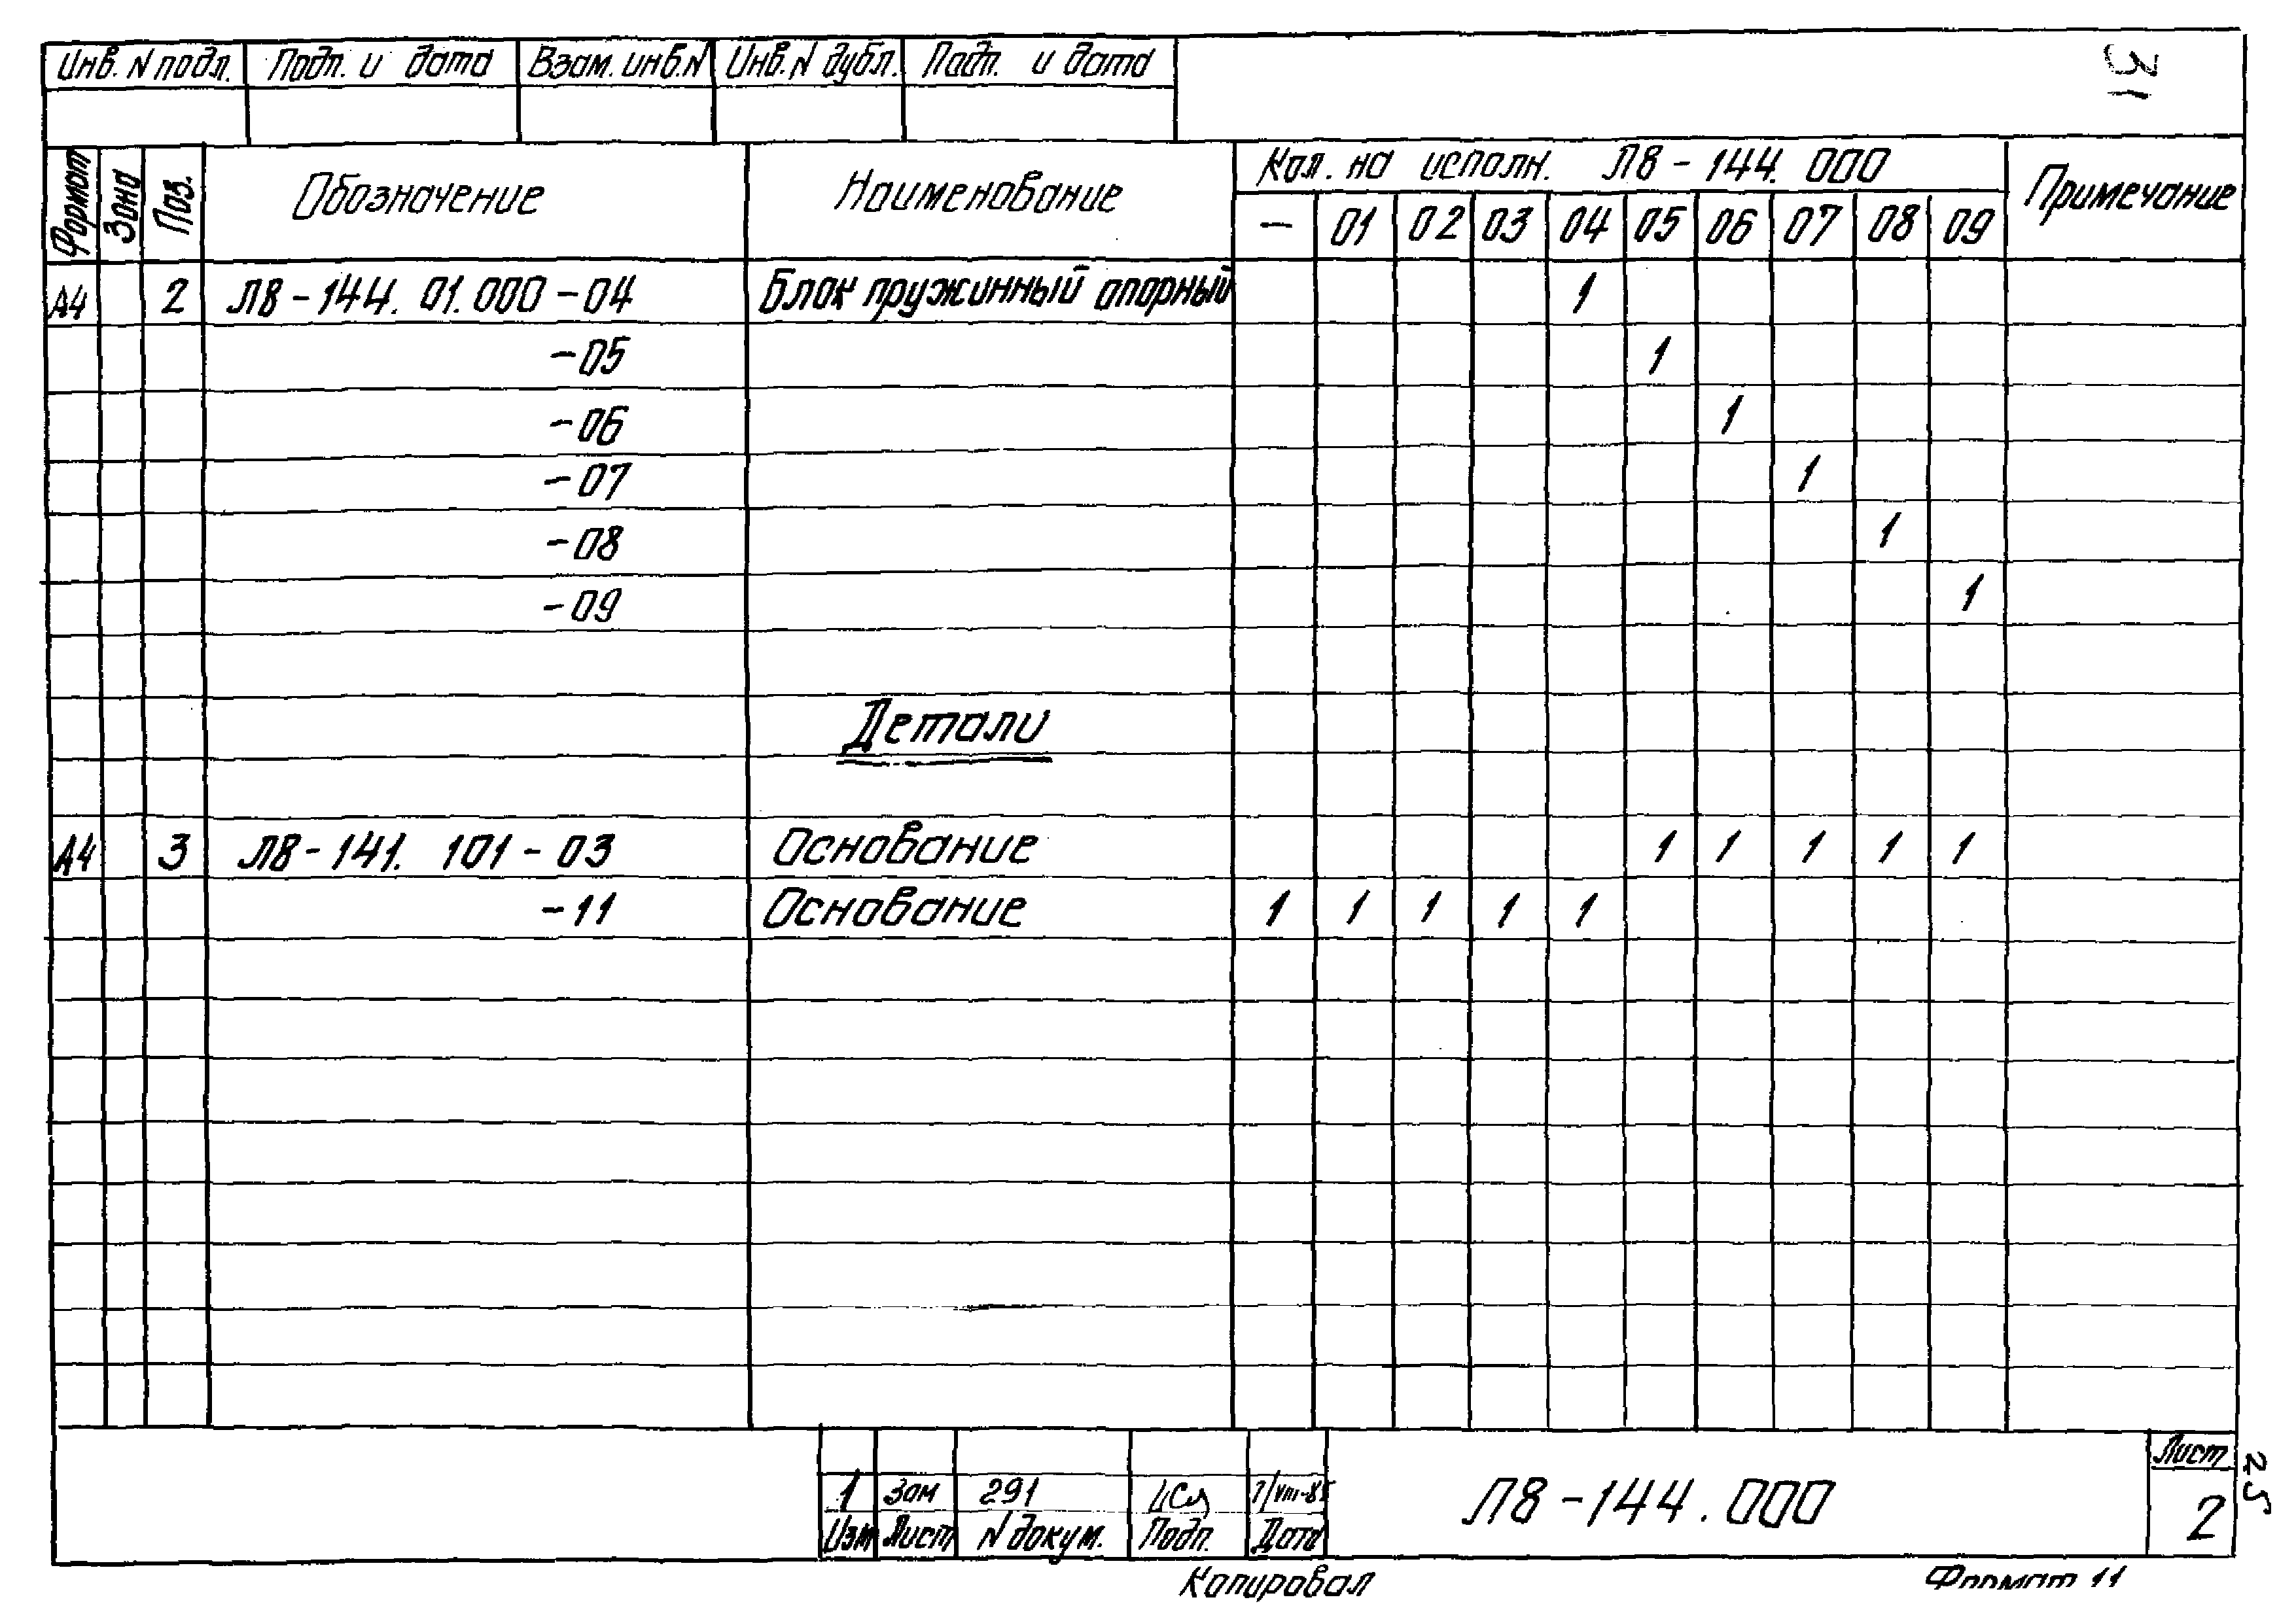 Инв. N подл. Подп. и дата Взам. инв. N Инв. N дубл. Подп. и дата
31
Формат Зона Поз. Обозначение Наименование Кол. на исполн. Л8-144.000 Примечание
- 01 02 03 04 05 06 07 08 09
А4 2 Л8-144.01.000-04 Блок пружинный опорный 1
-05 1
-06 1
-07 1
-08 1
-09 1
Детали
А4 3 Л8-141.101-03 Основание 1 1 1 1 1
-11 Основание 1 1 1 1 1
1 Зам 291
Изм Лист N докум. Подп. Дата
Л8-144.000
Лист
2
25
Копировал
Формат 11